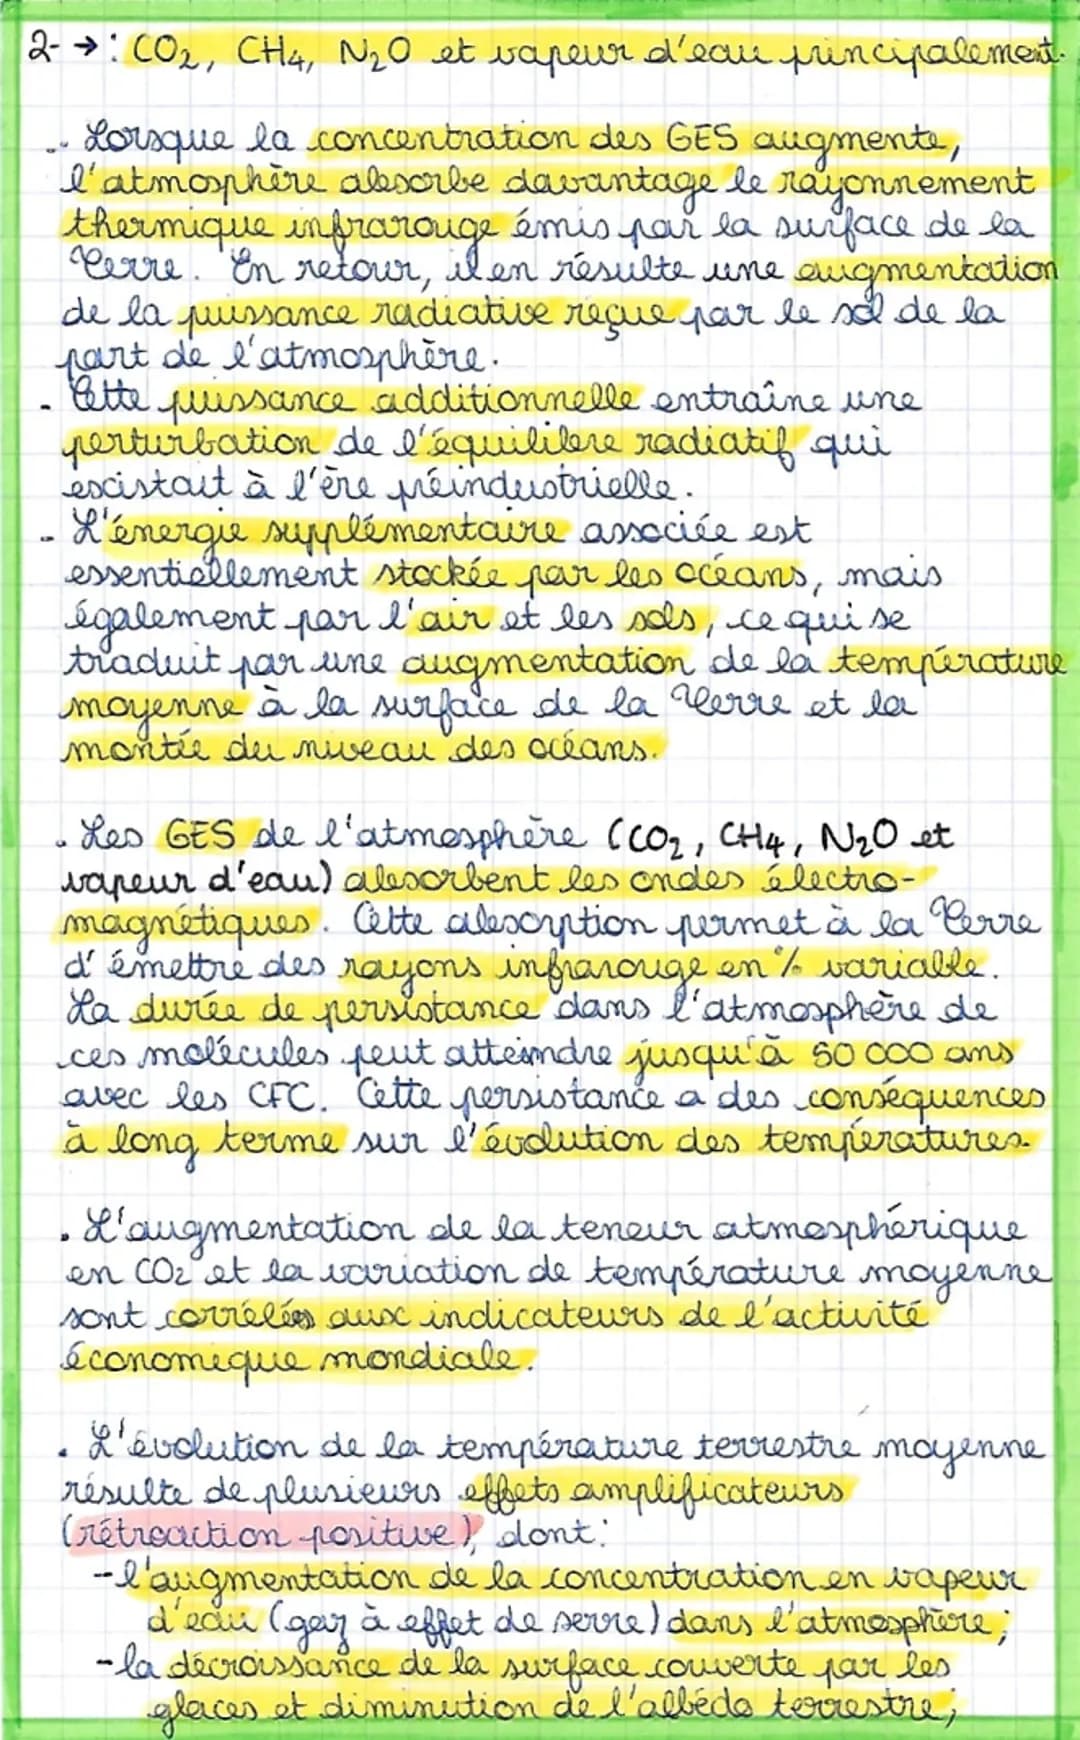 2- → : CO₂, CH₄, N₂O et vapeur d'eau principalement.
.. Lorsque la concentration des GES augmente,
l'atmosphère absorbe davantage le rayonnement
thermique infrarouge émis par la surface de la
Terre. En retour, il en résulte une augmentation
de la puissance radiative reçue par le sol de la
part de l'atmosphère.
- Cette puissance additionnelle entraîne une
perturbation de l'équilibre radiatif qui
existait à l'ère préindustrielle.
- L'énergie supplémentaire associée est
essentiellement stockée par les océans, mais
également par l'air et les sols, ce qui se
traduit par une augmentation de la température
moyenne à la surface de la Terre et la
montée du niveau des océans.
. Les GES de l'atmosphère (CO₂, CH₄, N₂O et
vapeur d'eau) absorbent les ondes électro-
magnétiques. Cette absorption permet à la Terre
d'émettre des rayons infrarouge en % variable.
La durée de persistance dans l'atmosphère de
ces molécules peut atteindre jusqu'à 50 000 ans
avec les CFC. Cette persistance a des conséquences
à long terme sur l'évolution des températures.
. L'augmentation de la teneur atmosphérique
en CO₂ et la variation de température moyenne
sont corrélés aux indicateurs de l'activité
économique mondiale.
. L'évolution de la température terrestre moyenne
résulte de plusieurs effets amplificateurs
(rétroaction positive), dont:
- l'augmentation de la concentration en vapeur
d'eau (gaz à effet de serre) dans l'atmosphère;
- la décroissance de la surface couverte par les
glaces et diminution de l'albédo terrestre;